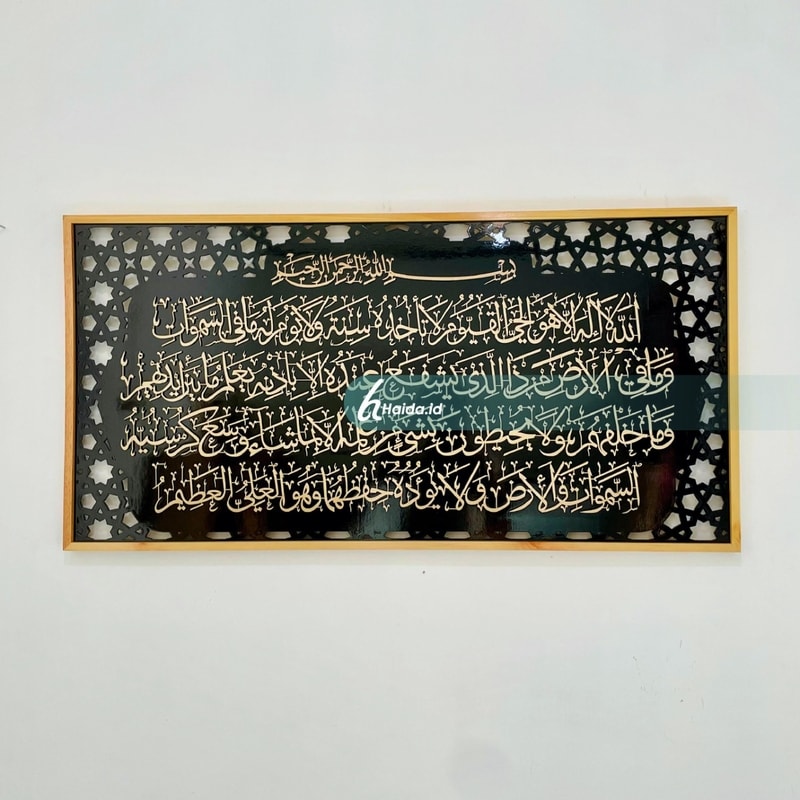 بسم الله الرحمن الرحيم
الله لا إله إلا هو الحي القيوم لا تأخذه سنة ولا نوم له ما في السموات
وما في الأرض من ذا الذي يشفع عنده إلا بإذنه يعلم ما بين أيديهم
وما خلفهم ولا يحيطون بشيء من علمه إلا بما شاء وسع كرسيه
السموات والأرض ولا يؤده حفظهما وهو العلي العظيم
Haida.id